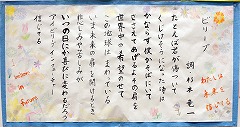 ビリーブ
詞 杉本竜一
たとえば君が傷ついて
くじけそうになった時は
かならず僕がそばにいて
ささえてあげるよその肩を
世界中の希望のせて
この地球はまわってる
いま未来の扉を開けるとき
悲しみや苦しみが
いつの日にか喜びに変わるだろう
アイビリーブインフューチャー
信じてる
わたしは
未来を
信じてる
believe
in
future